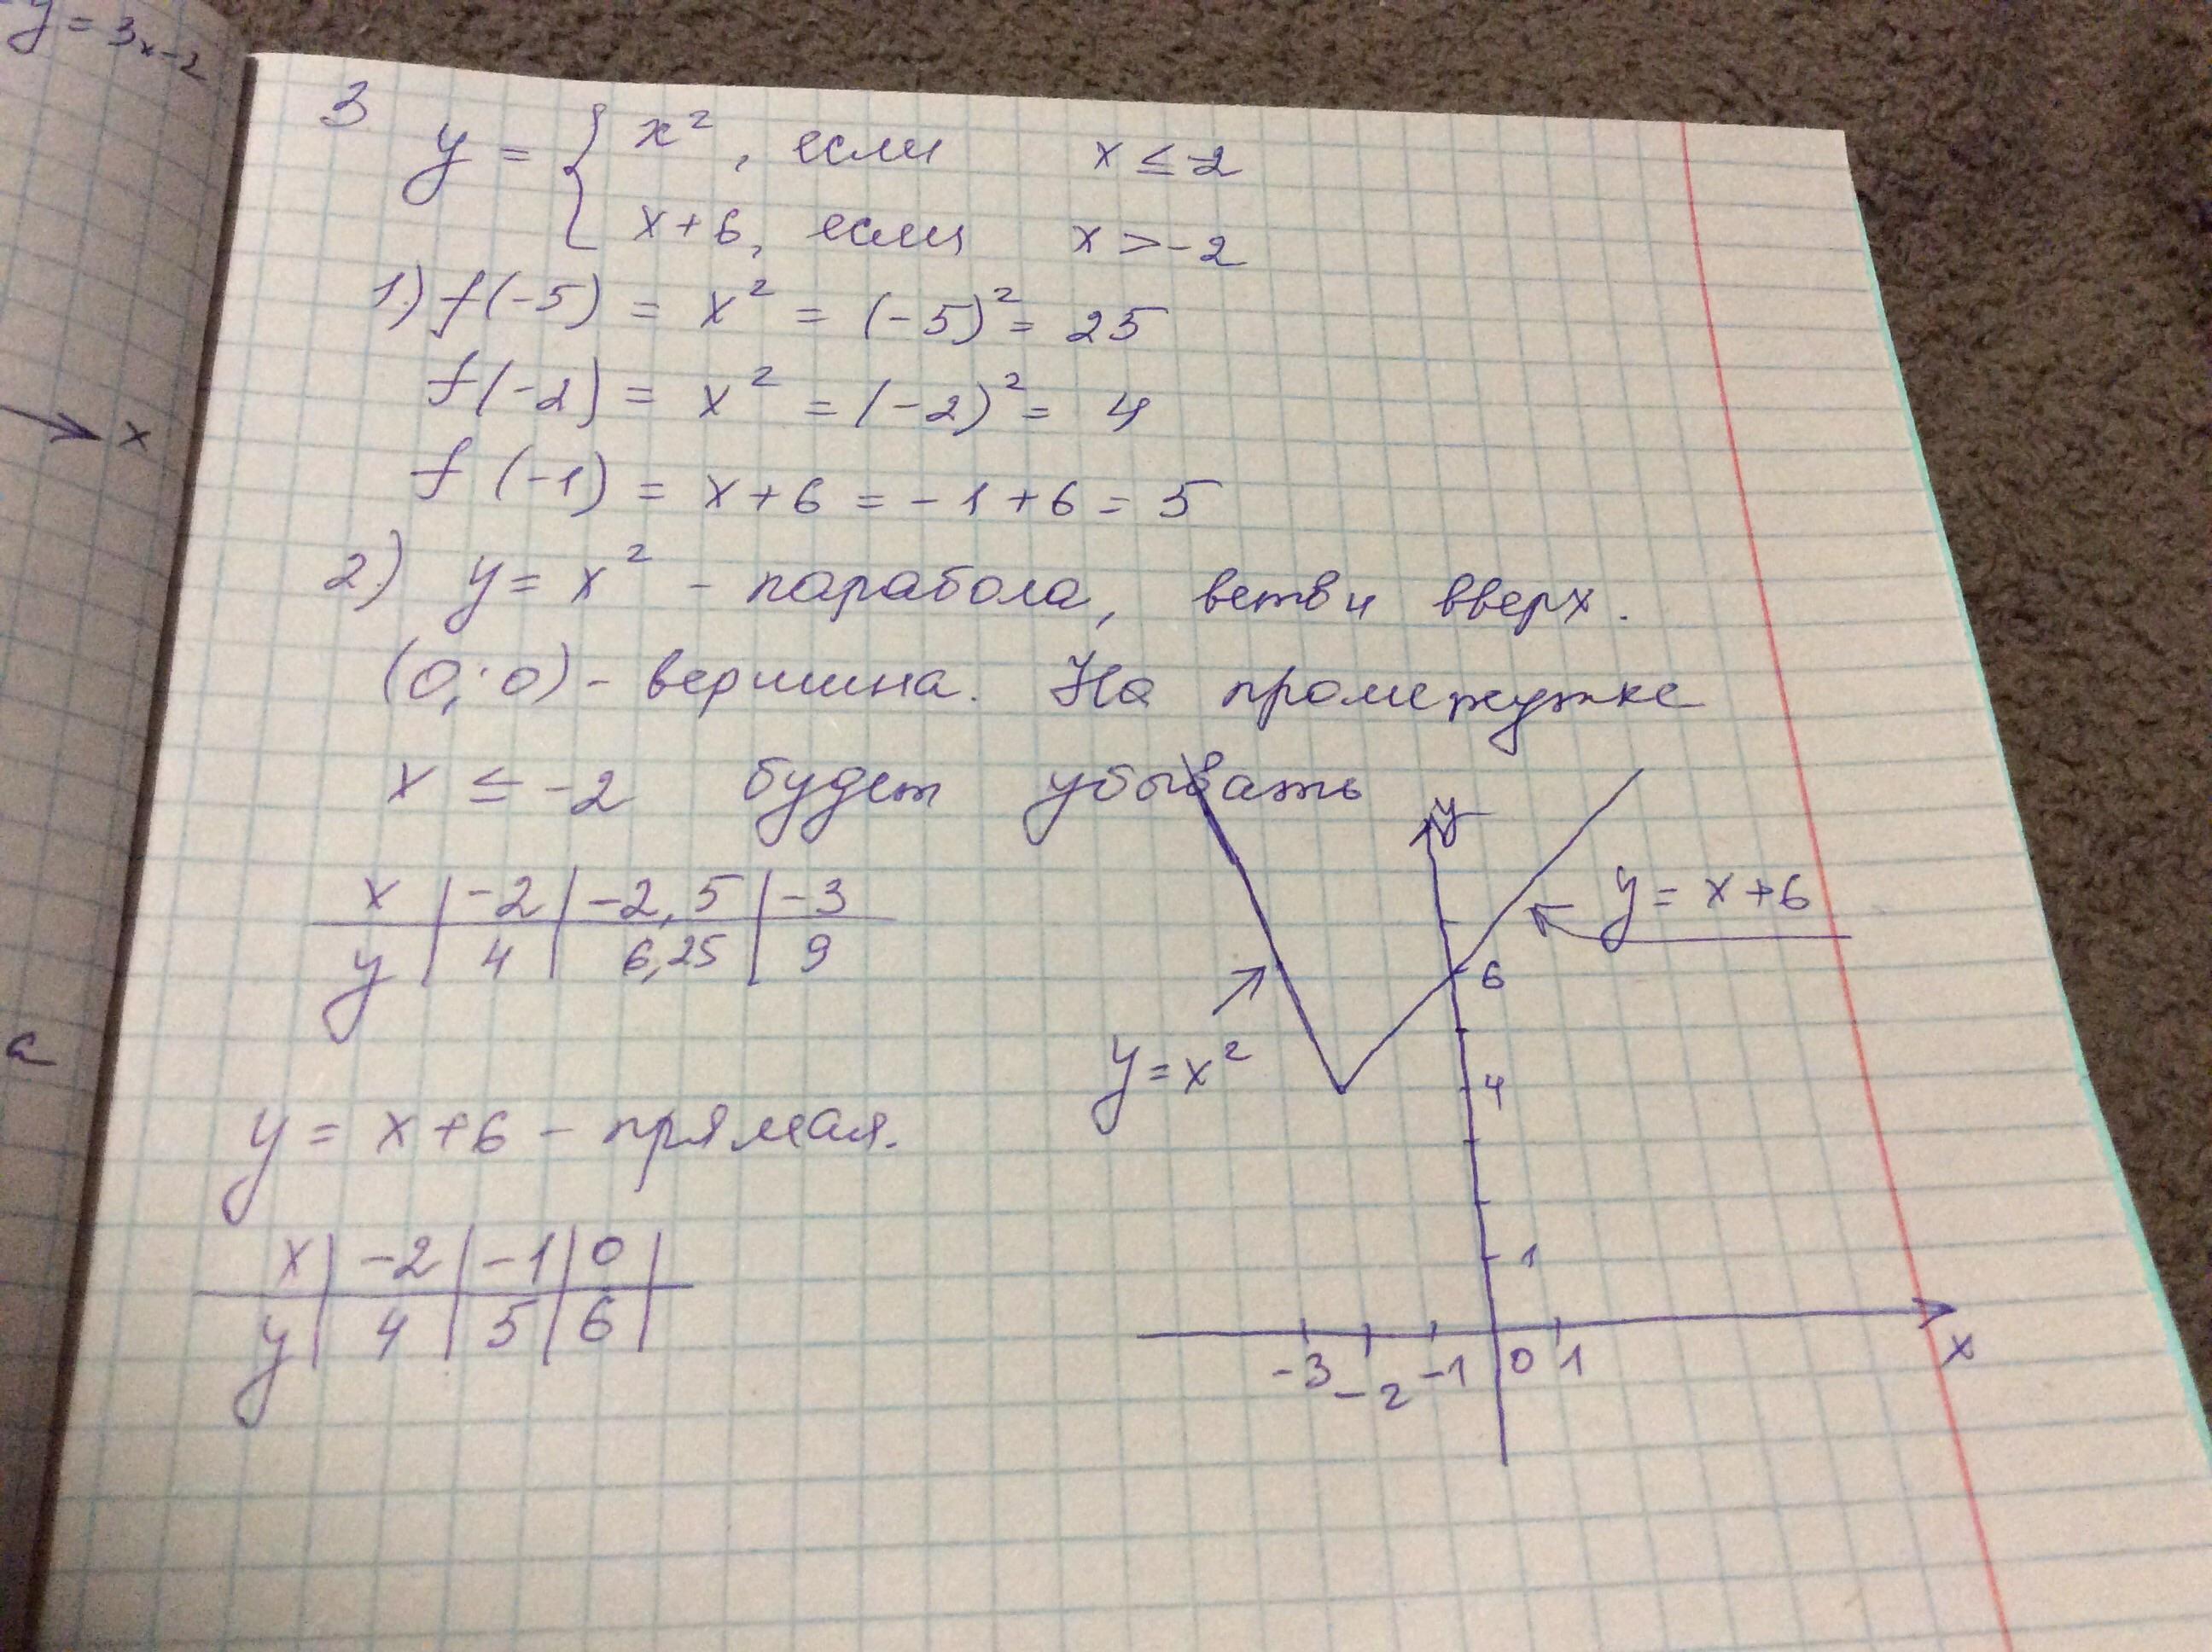 y = 3x - 2
x
a
3
y = { x², если x ≤ -2
x + 6, если x > -2
1.) f(-5) = x² = (-5)² = 25
f(-2) = x² = (-2)² = 4
f (-1) = x + 6 = -1 + 6 = 5
2.) y = x² - парабола, ветви вверх.
(0; 0) - вершина. На промежутке
x ≤ -2 будет убывать
x | -2 | -2,5 | -3
y | 4 | 6,25 | 9
y = x + 6 - прямая.
x | -2 | -1 | 0 |
y | 4 | 5 | 6 |
y
y = x + 6
6
y = x²
4
1
-3 -2 -1 0 1 x